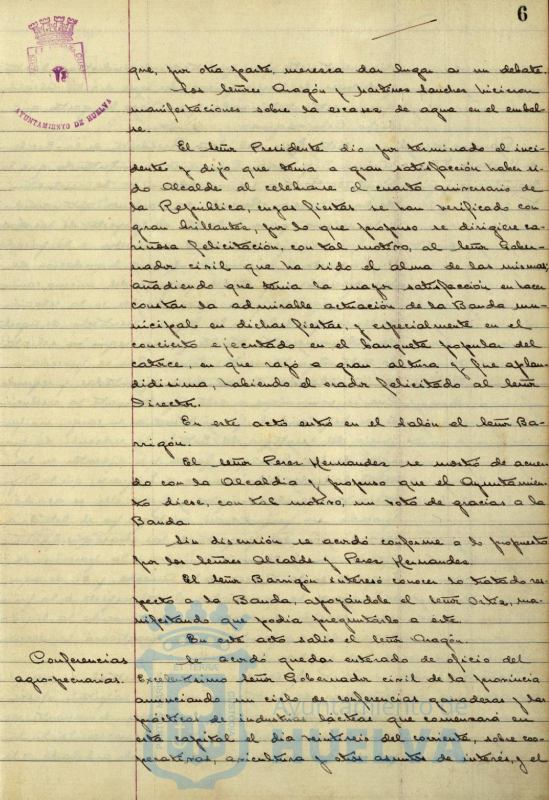 6
AYUNTAMIENTO DE HUELVA
que, por otra parte, merezca dar lugar a un debate.
Los Señores Aragón y Martínez Sanchez hicieron
manifestaciones sobre la escasez de agua en el embal-
se.
El Señor Presidente dió por terminado el inci-
dente y dijo que tenia a gran satisfacción haber si-
do Alcalde al celebrarse el cuarto aniversario de
la República, cuyas fiestas se han verificado con
gran brillantez, por lo que propuso se dirigiere ca-
riñosa felicitación, con tal motivo, al Señor Gober-
nador civil que ha sido el alma de las mismas,
añadiendo que tenia la mayor satisfacción en hacer
constar la admirable actuación de la Banda mu-
nicipal en dichas fiestas, y especialmente en el
concierto ejecutado en el banquete popular del
catorce, en que rayó a gran altura y fue aplau-
didisima, habiendo el orador felicitado al Señor
Director.
En este acto entró en el Salón el Señor Ba-
rrigón.
El Señor Perez Hernandez se mostró de acuer-
do con la Alcaldia y propuso que el Ayuntamien-
to diese, con tal motivo, un voto de gracias a la
Banda.
Sin discusión se acordó conforme a lo propuesto
por los Señores Alcalde y Perez Hernandez.
El Señor Barrigón interesó conocer lo tratado res-
pecto a la Banda, apoyándole el Señor Ortiz, ma-
nifestando que podia preguntarlo a éste.
En este acto salió el Señor Aragón.
Conferencias
agro-pecuarias.
Se acordó quedar enterado de oficio del
Excelentisimo Señor Gobernador civil de la provincia
anunciando un ciclo de conferencias ganaderas y las
prácticas de industrias lácteas que comenzará en
esta capital el dia veintiseis del corriente, sobre coo-
perativas, avicultura y otros asuntos de interés, y el
Ayuntamiento de
HUELVA